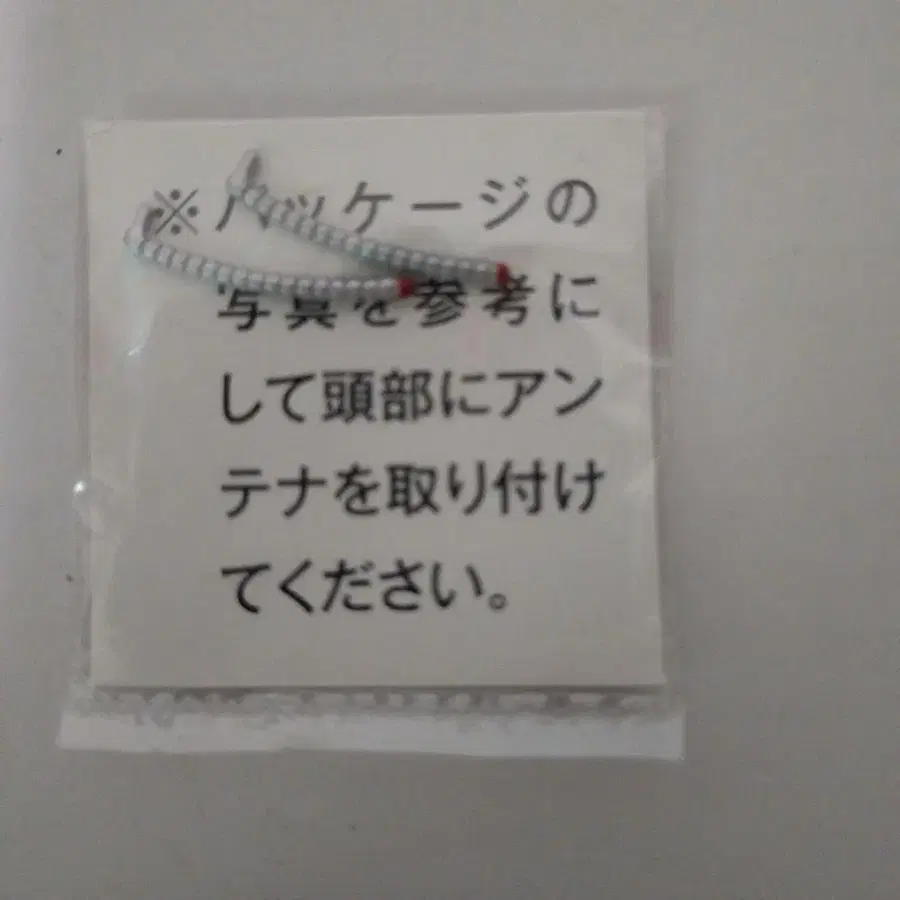 ※パッケージの
写真を参考に
して頭部にアン
テナを取り付け
てください。